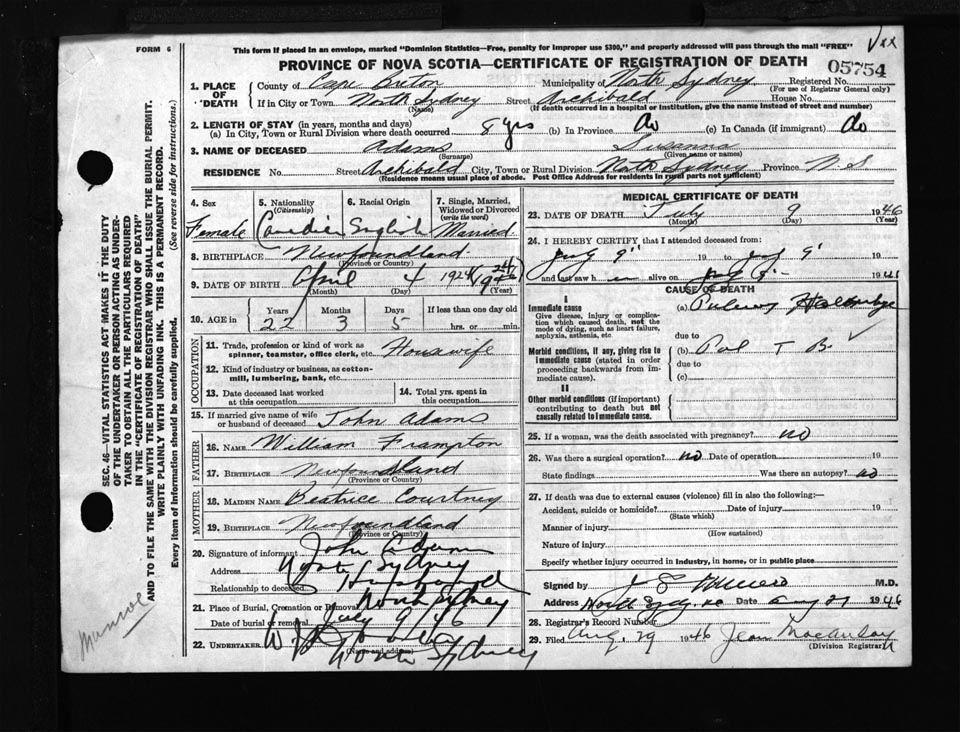 FORM 6
This form if placed in an envelope, marked "Dominion Statistics—Free, penalty for improper use $300," and properly addressed will pass through the mail "FREE"
PROVINCE OF NOVA SCOTIA—CERTIFICATE OF REGISTRATION OF DEATH
05754
1. PLACE OF DEATH
County of Cape Breton Municipality of North Sydney Registered No.
(For use of Registrar General only)
If in City or Town North Sydney Street Archibald House No.
(Name) (If death occurred in a hospital or institution, give the name instead of street and number)
2. LENGTH OF STAY (in years, months and days)
(a) In City, Town or Rural Division where death occurred 8 yrs (b) In Province do (c) In Canada (if immigrant) do
3. NAME OF DECEASED Adams Susanna
(Surname) (Given name or names)
RESIDENCE No. Street Archibald City, Town or Rural Division North Sydney Province N S
(Residence means usual place of abode. Post Office Address for residents in rural parts not sufficient)
4. Sex Female
5. Nationality (Citizenship)
6. Racial Origin English
7. Single, Married, Widowed or Divorced (write the word) Married
8. BIRTHPLACE Newfoundland
(Province or Country)
9. DATE OF BIRTH April 4 1924
(Month) (Day) (Year)
10. AGE in Years 22 Months 3 Days 5 If less than one day old
hrs. or min.
OCCUPATION
11. Trade, profession or kind of work as spinner, teamster, office clerk, etc. Housewife
12. Kind of industry or business, as cotton-mill, lumbering, bank, etc.
13. Date deceased last worked at this occupation
14. Total yrs. spent in this occupation
15. If married give name of wife or husband of deceased John Adams
FATHER
16. NAME William Frampton
17. BIRTHPLACE Newfoundland
(Province or Country)
MOTHER
18. MAIDEN NAME Beatrice Courtney
19. BIRTHPLACE Newfoundland
(Province or Country)
20. Signature of informant John Adams
Address North Sydney
Relationship to deceased Husband
21. Place of Burial, Cremation or Removal North Sydney
Date of burial or removal July 9/46
22. UNDERTAKER
(Name and address)
North Sydney
MEDICAL CERTIFICATE OF DEATH
23. DATE OF DEATH July 9 1946
(Month) (Day) (Year)
24. I HEREBY CERTIFY, that I attended deceased from:
19 to 19
and last saw h alive on 19
CAUSE OF DEATH
I
Immediate cause
Give disease, injury or complication which caused death, not the mode of dying, such as heart failure, asphyxia, asthenia, etc.
(a)
due to
Morbid conditions, if any, giving rise to immediate cause (stated in order proceeding backwards from immediate cause).
(b) Pul T B.
due to
(c)
II
Other morbid conditions (if important) contributing to death but not causally related to immediate cause.
25. If a woman, was the death associated with pregnancy? no
26. Was there a surgical operation? no Date of operation 19
State findings Was there an autopsy? no
27. If death was due to external causes (violence) fill in also the following:—
Accident, suicide or homicide? Date of injury 19
(State which)
Manner of injury
(How sustained)
Nature of injury
Specify whether injury occurred in industry, in home, or in public place
Signed by M.D.
Address Date 1946
28. Registrar's Record Number
29. Filed Aug. 29 1946 Jean MacAulay
(Division Registrar)
SEC. 46—VITAL STATISTICS ACT MAKES IT THE DUTY
OF THE UNDERTAKER OR PERSON ACTING AS UNDER-
TAKER TO OBTAIN ALL THE PARTICULARS REQUIRED
IN THE "CERTIFICATE OF REGISTRATION OF DEATH"
AND TO FILE THE SAME WITH THE DIVISION REGISTRAR WHO SHALL ISSUE THE BURIAL PERMIT.
WRITE PLAINLY WITH UNFADING INK. THIS IS A PERMANENT RECORD.
Every item of Information should be carefully supplied. (See reverse side for instructions.)
Munroe